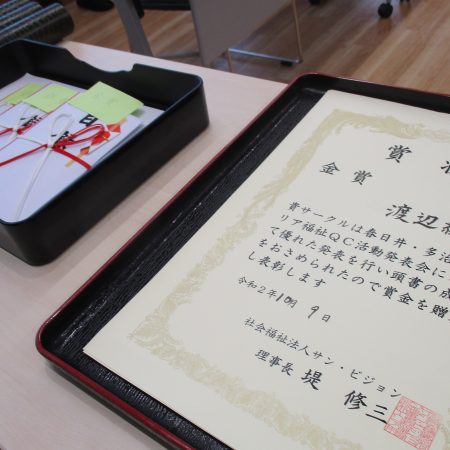 賞
金賞
渡辺
貴サークルは春日井・多治
リア福祉QC活動発表会に
て優れた発表を行い頭書の成
をおさめられたので賞金を贈
し表彰します
令和2年10月9日
社会福祉法人サン・ビジョン
理事長 堤 修三